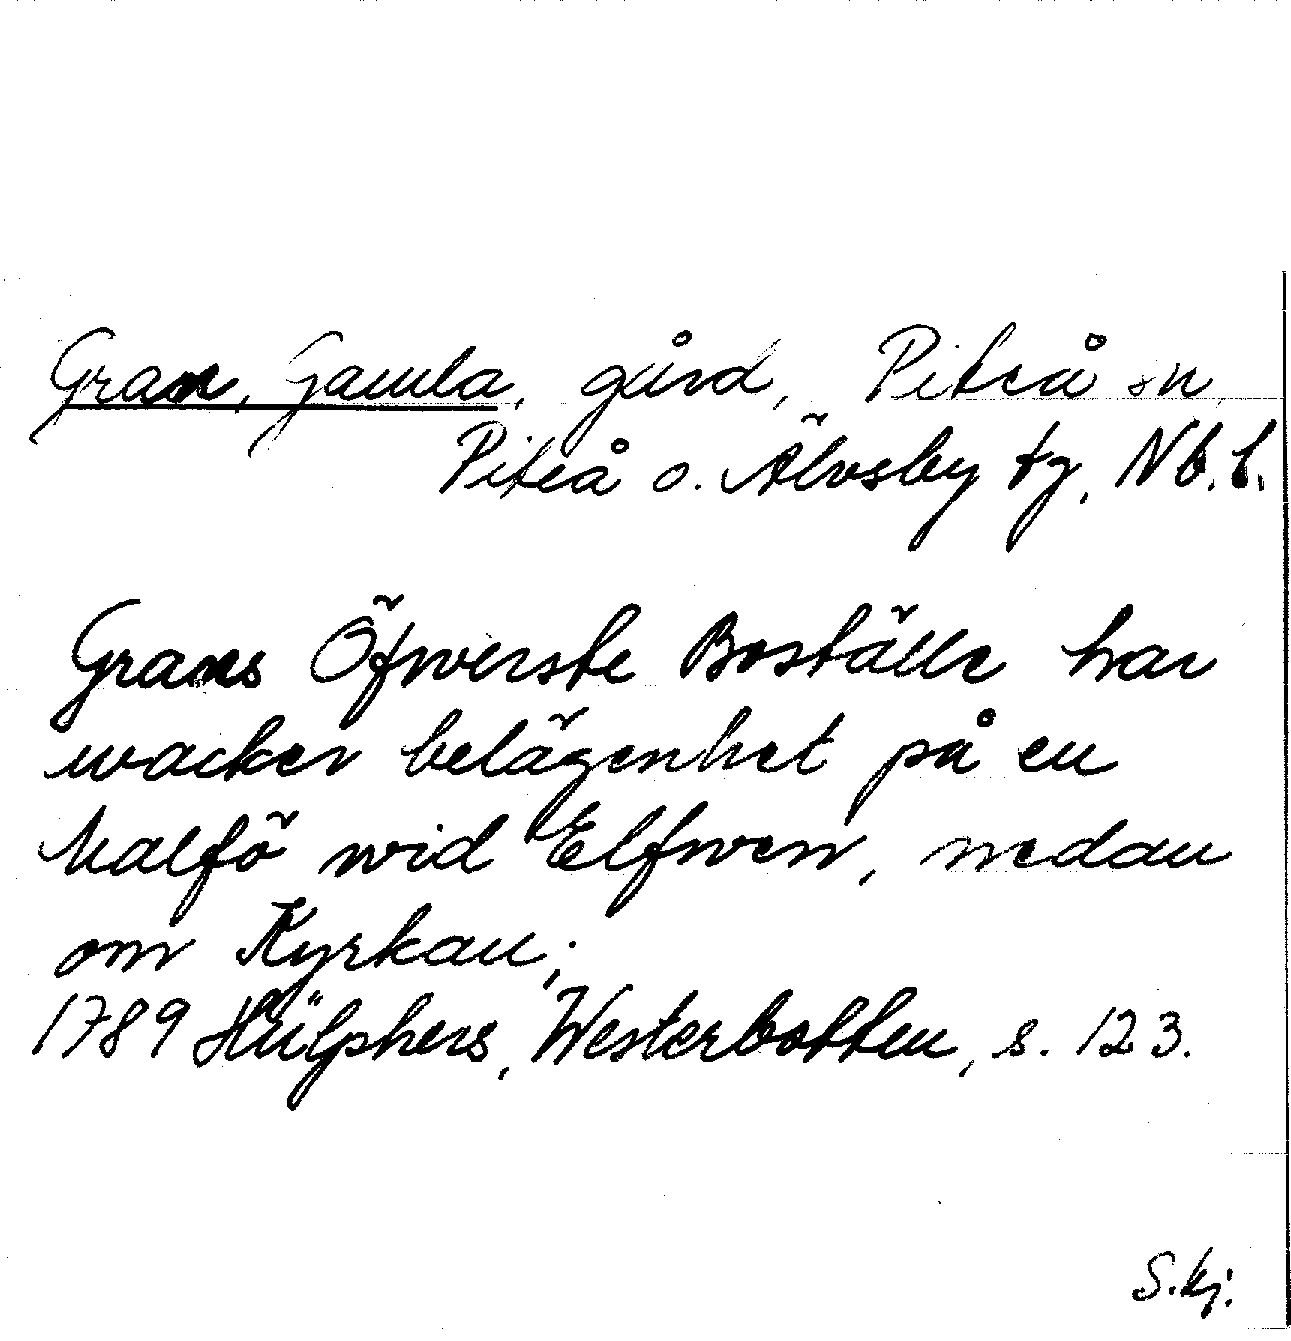 Gran, Gamla, gård, Piteå sn,
Piteå o. Älvsby tg, Nb. l.
Grans Öfwerste Boställe har
wacker belägenhet på en
halfö wid Elfwen, nedan
om Kyrkan;
1789 Hülphers, Westerbotten, s. 123.
S. kj.